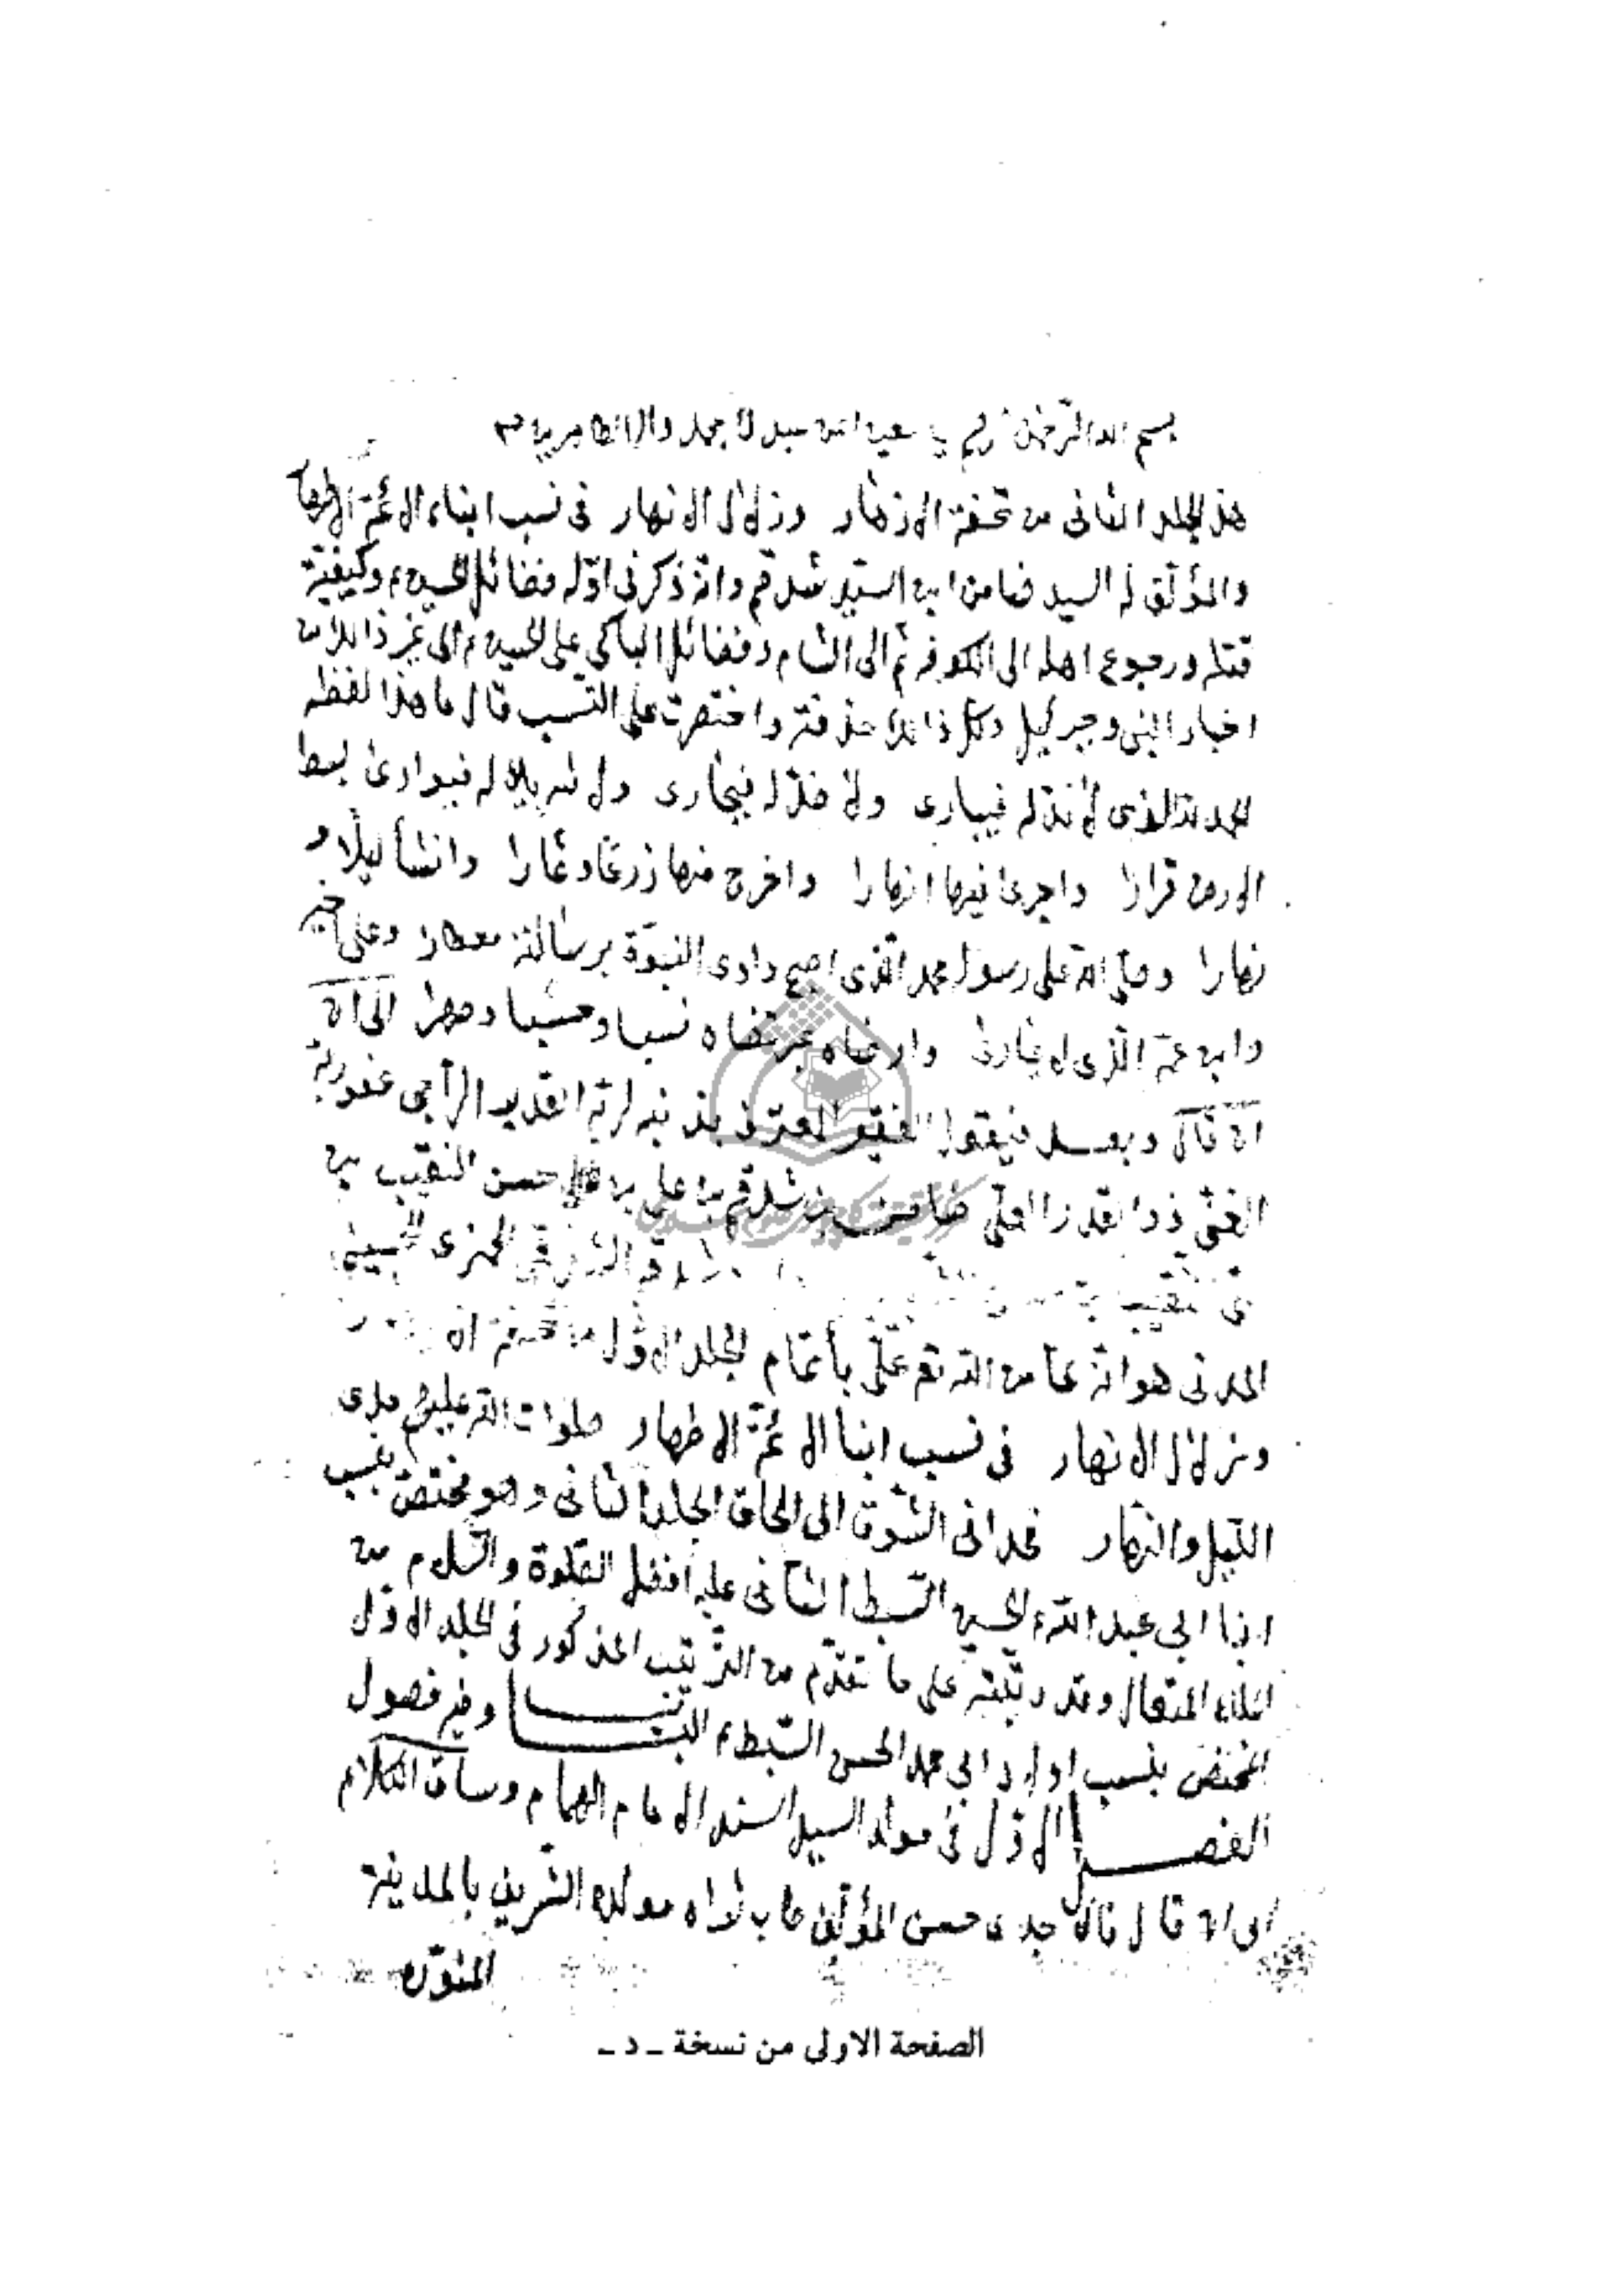 بسم الله الرحمن محمد وآله الطاهرين
هذا المجلد الثانى من تحفة الازهار وزلال الانهار فى نسب ابناء الائمة الاطهار
والمؤلف له السيد ضامن ابن السيد شدقم وانه ذكر فى اوله فضائل الحسين ع وكيفية
قتله ورجوع اهله الى الكوفة ثم الى الشام وفضائل الباكي على الحسين ع الى غير ذالك من
اخبار النبى وجبرئيل وكل ذالك حذفته واختصرت على النسب قال ما هذا لفظه
الحمد لله الذى لا ند له فيبارى ولا ضد له فيجارى ولا شريك له فيوارى بسط
الارض قرارا واجرى فيها انهارا واخرج منها زرعا وثمارا وانشأ ليلا و
نهارا وصلى الله على رسوله محمد الذى اصبح وادى النبوة برسالته معطارا وعلى اخيه
وابن عمه الذى وارضاه بمرتضاه نسبا وحسبا وصهرا الى ان
ان قال وبعد فيقول الفقير المعترف بذنبه لربه القدير الراجى عفو ربه
الغنى ذو القدر العلى ضامن بن شدقم بن على بن حسن النقيب بن
النقيب الحمزى الحسينى
المدنى هو انه لما من الله تع على بأتمام المجلد الاول من تحفة
وزلال الانهار فى نسب ابنا الائمة الاطهار صلوات الله عليهم مدى
الليل والنهار فحدانى الشوق الى الحاق المجلد الثانى وهو مختص بنسب
ابنا ابى عبد الله الحسين السبط الثانى عليه افضل الصلوة والسلام من
الملك المتعال وقد رتبته على ما تقدم من الترتيب المذكور فى المجلد الاول
المختص بنسب اولاد ابى محمد الحسن السبط ع وفيه فصول
الفصل الاول فى مولد السيد السند الامام الهمام وساق الكلام
الى ان قال قال جدى حسن المؤلف طاب ثراه مولده الشريف بالمدينة
المنوره
الصفحة الاولى من نسخة ـ د ـ